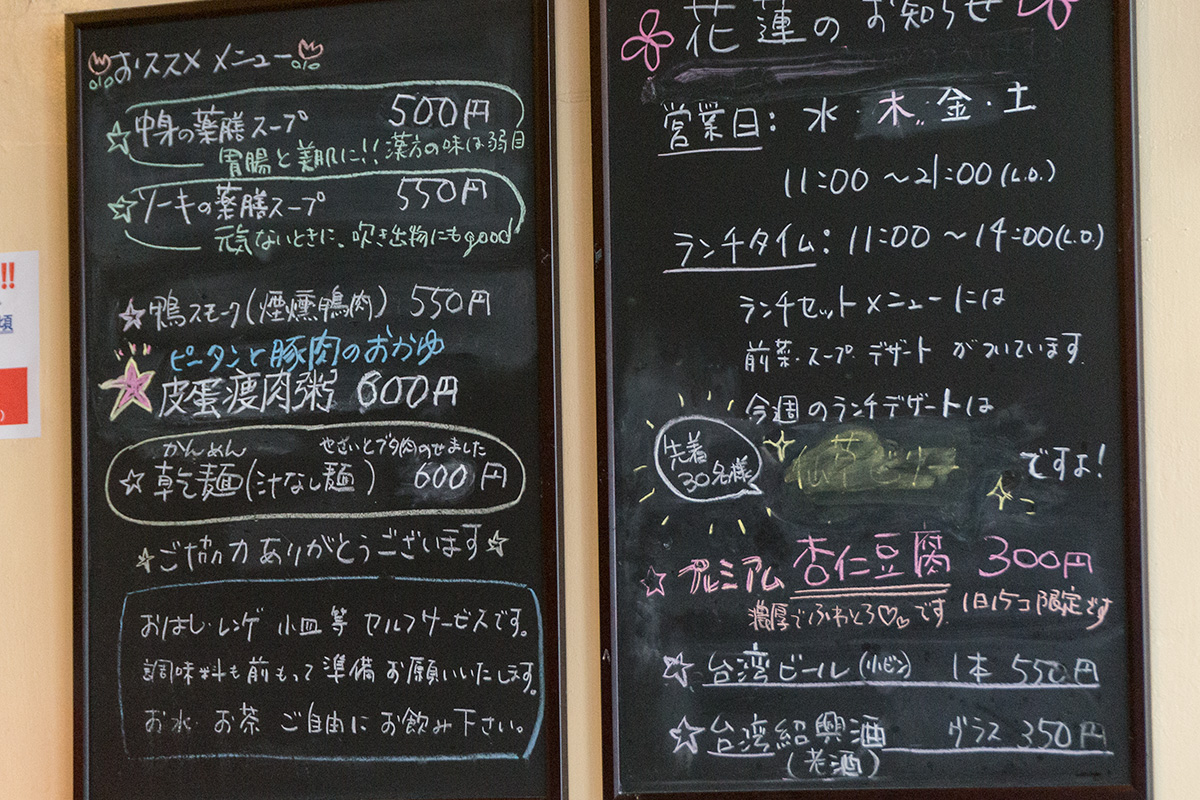 おススメ メニュー
☆中身の薬膳スープ 500円
胃腸と美肌に!!漢方の味は弱目
☆ソーキの薬膳スープ 550円
元気ないときに、吹き出物にもgood
☆鴨スモーク(煙燻鴨肉) 550円
ピータンと豚肉のおかゆ
皮蛋瘦肉粥 600円
かんめん やさいとブタ肉のせました
☆乾麺(汁なし麺) 600円
☆ご協力ありがとうございます☆
おはし・レンゲ 小皿等 セルフサービスです。
調味料も前もって準備お願いいたします。
お水・お茶 ご自由にお飲み下さい。
花蓮のお知らせ
営業日: 水・木・金・土
11:00~21:00(L.O.)
ランチタイム: 11:00~14:00(L.O.)
ランチセットメニューには
前菜・スープ デザート がついています
今週のランチデザートは
先着
30名様
仙草ゼリー ですよ!
☆プレミアム 杏仁豆腐 300円
濃厚でふわとろ♡♡です 1日15コ限定です
☆台湾ビール(小ビン) 1本 550円
☆台湾紹興酒 グラス 350円
(老酒)
!!
頃